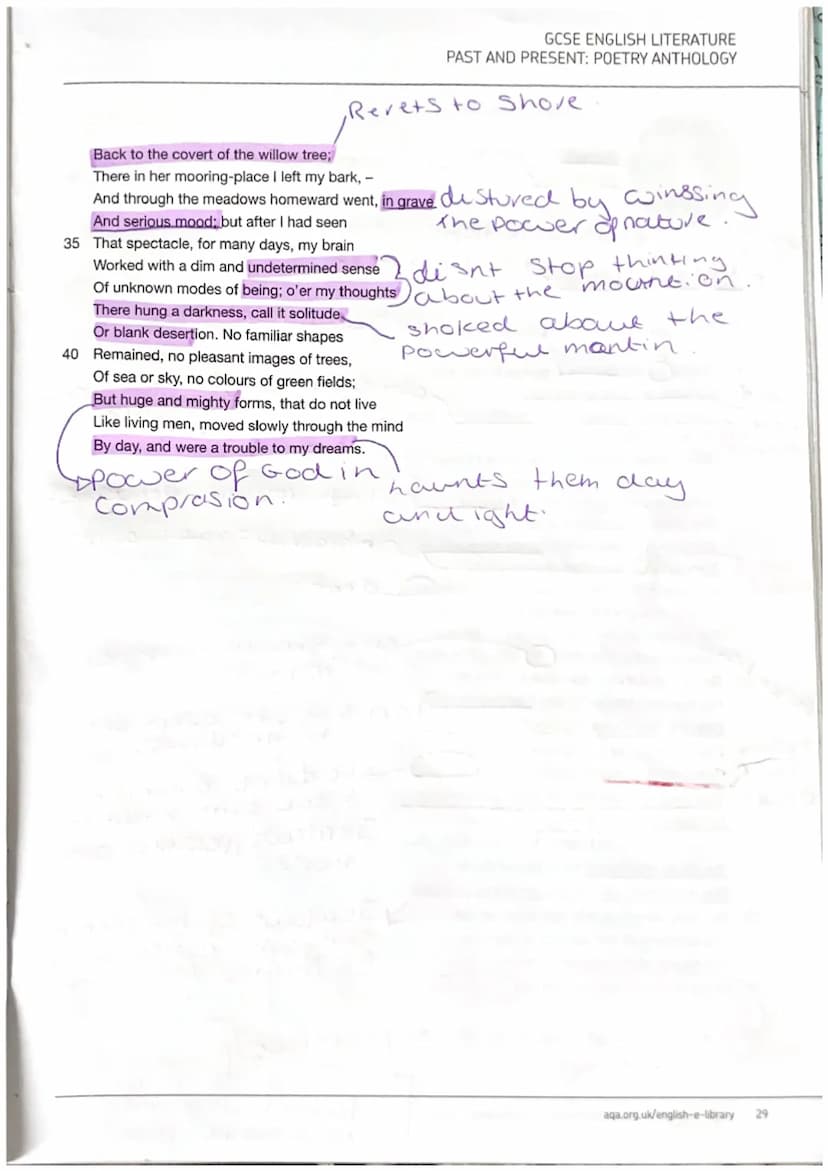 GCSE ENGLISH LITERATURE
PAST AND PRESENT: POETRY ANTHOLOGY
Rerets to shore.
Back to the covert of the willow tree;
There in her mooring-place I left my bark, –
And through the meadows homeward went, in grave
And serious mood; but after I had seen
destured by winssing
the power of nature.
35 That spectacle, for many days, my brain
Worked with a dim and undetermined sense
Of unknown modes of being; o'er my thoughts
disnt stop thinting
about the mountion.
There hung a darkness, call it solitude,
Or blank desertion. No familiar shapes
shoked about the
powerful mantin.
40 Remained, no pleasant images of trees,
Of sea or sky, no colours of green fields;
But huge and mighty forms, that do not live
Like living men, moved slowly through the mind
By day, and were a trouble to my dreams.
power of God in
comprasion.
haunts them day
and ight.
aqa.org.uk/english-e-library 29